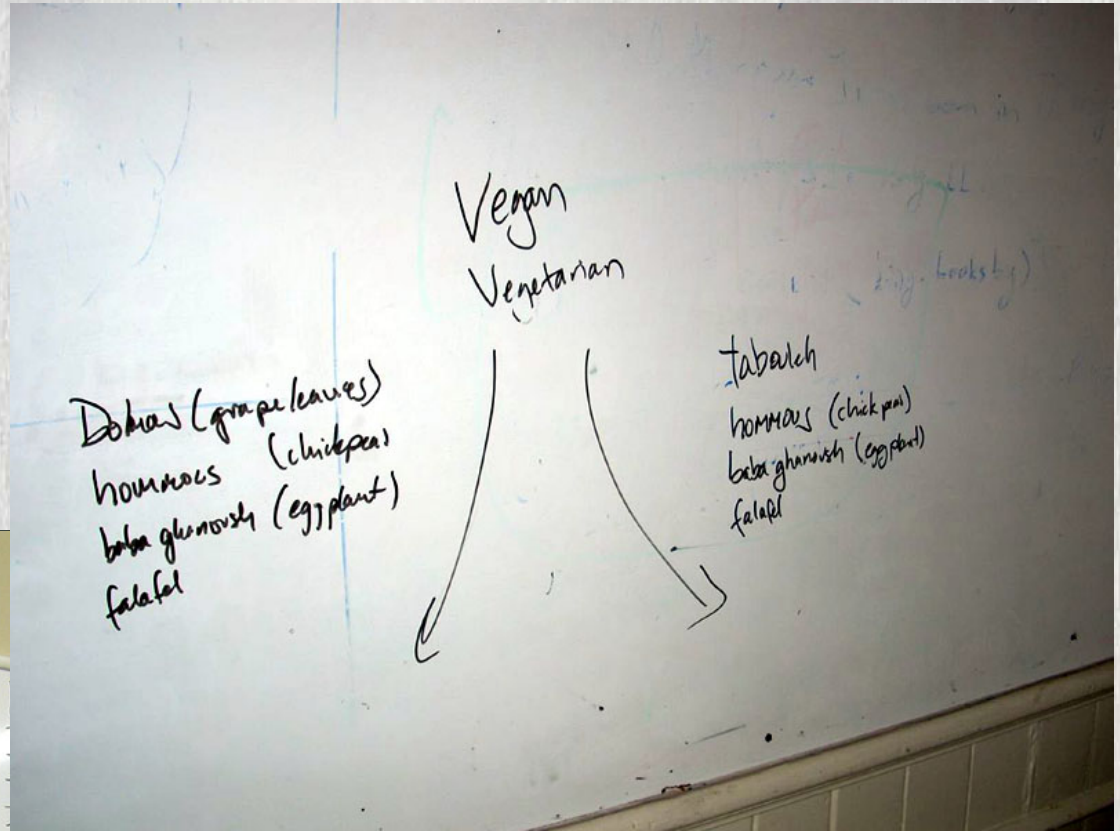 Vegan
Vegetarian
Dolmas (grape leaves)
hommos (chickpeas
baba ghanoush (eggplant)
falafel
tabouleh
hommous (chick peas)
baba ghanoush (eggplant)
falafel
books by)